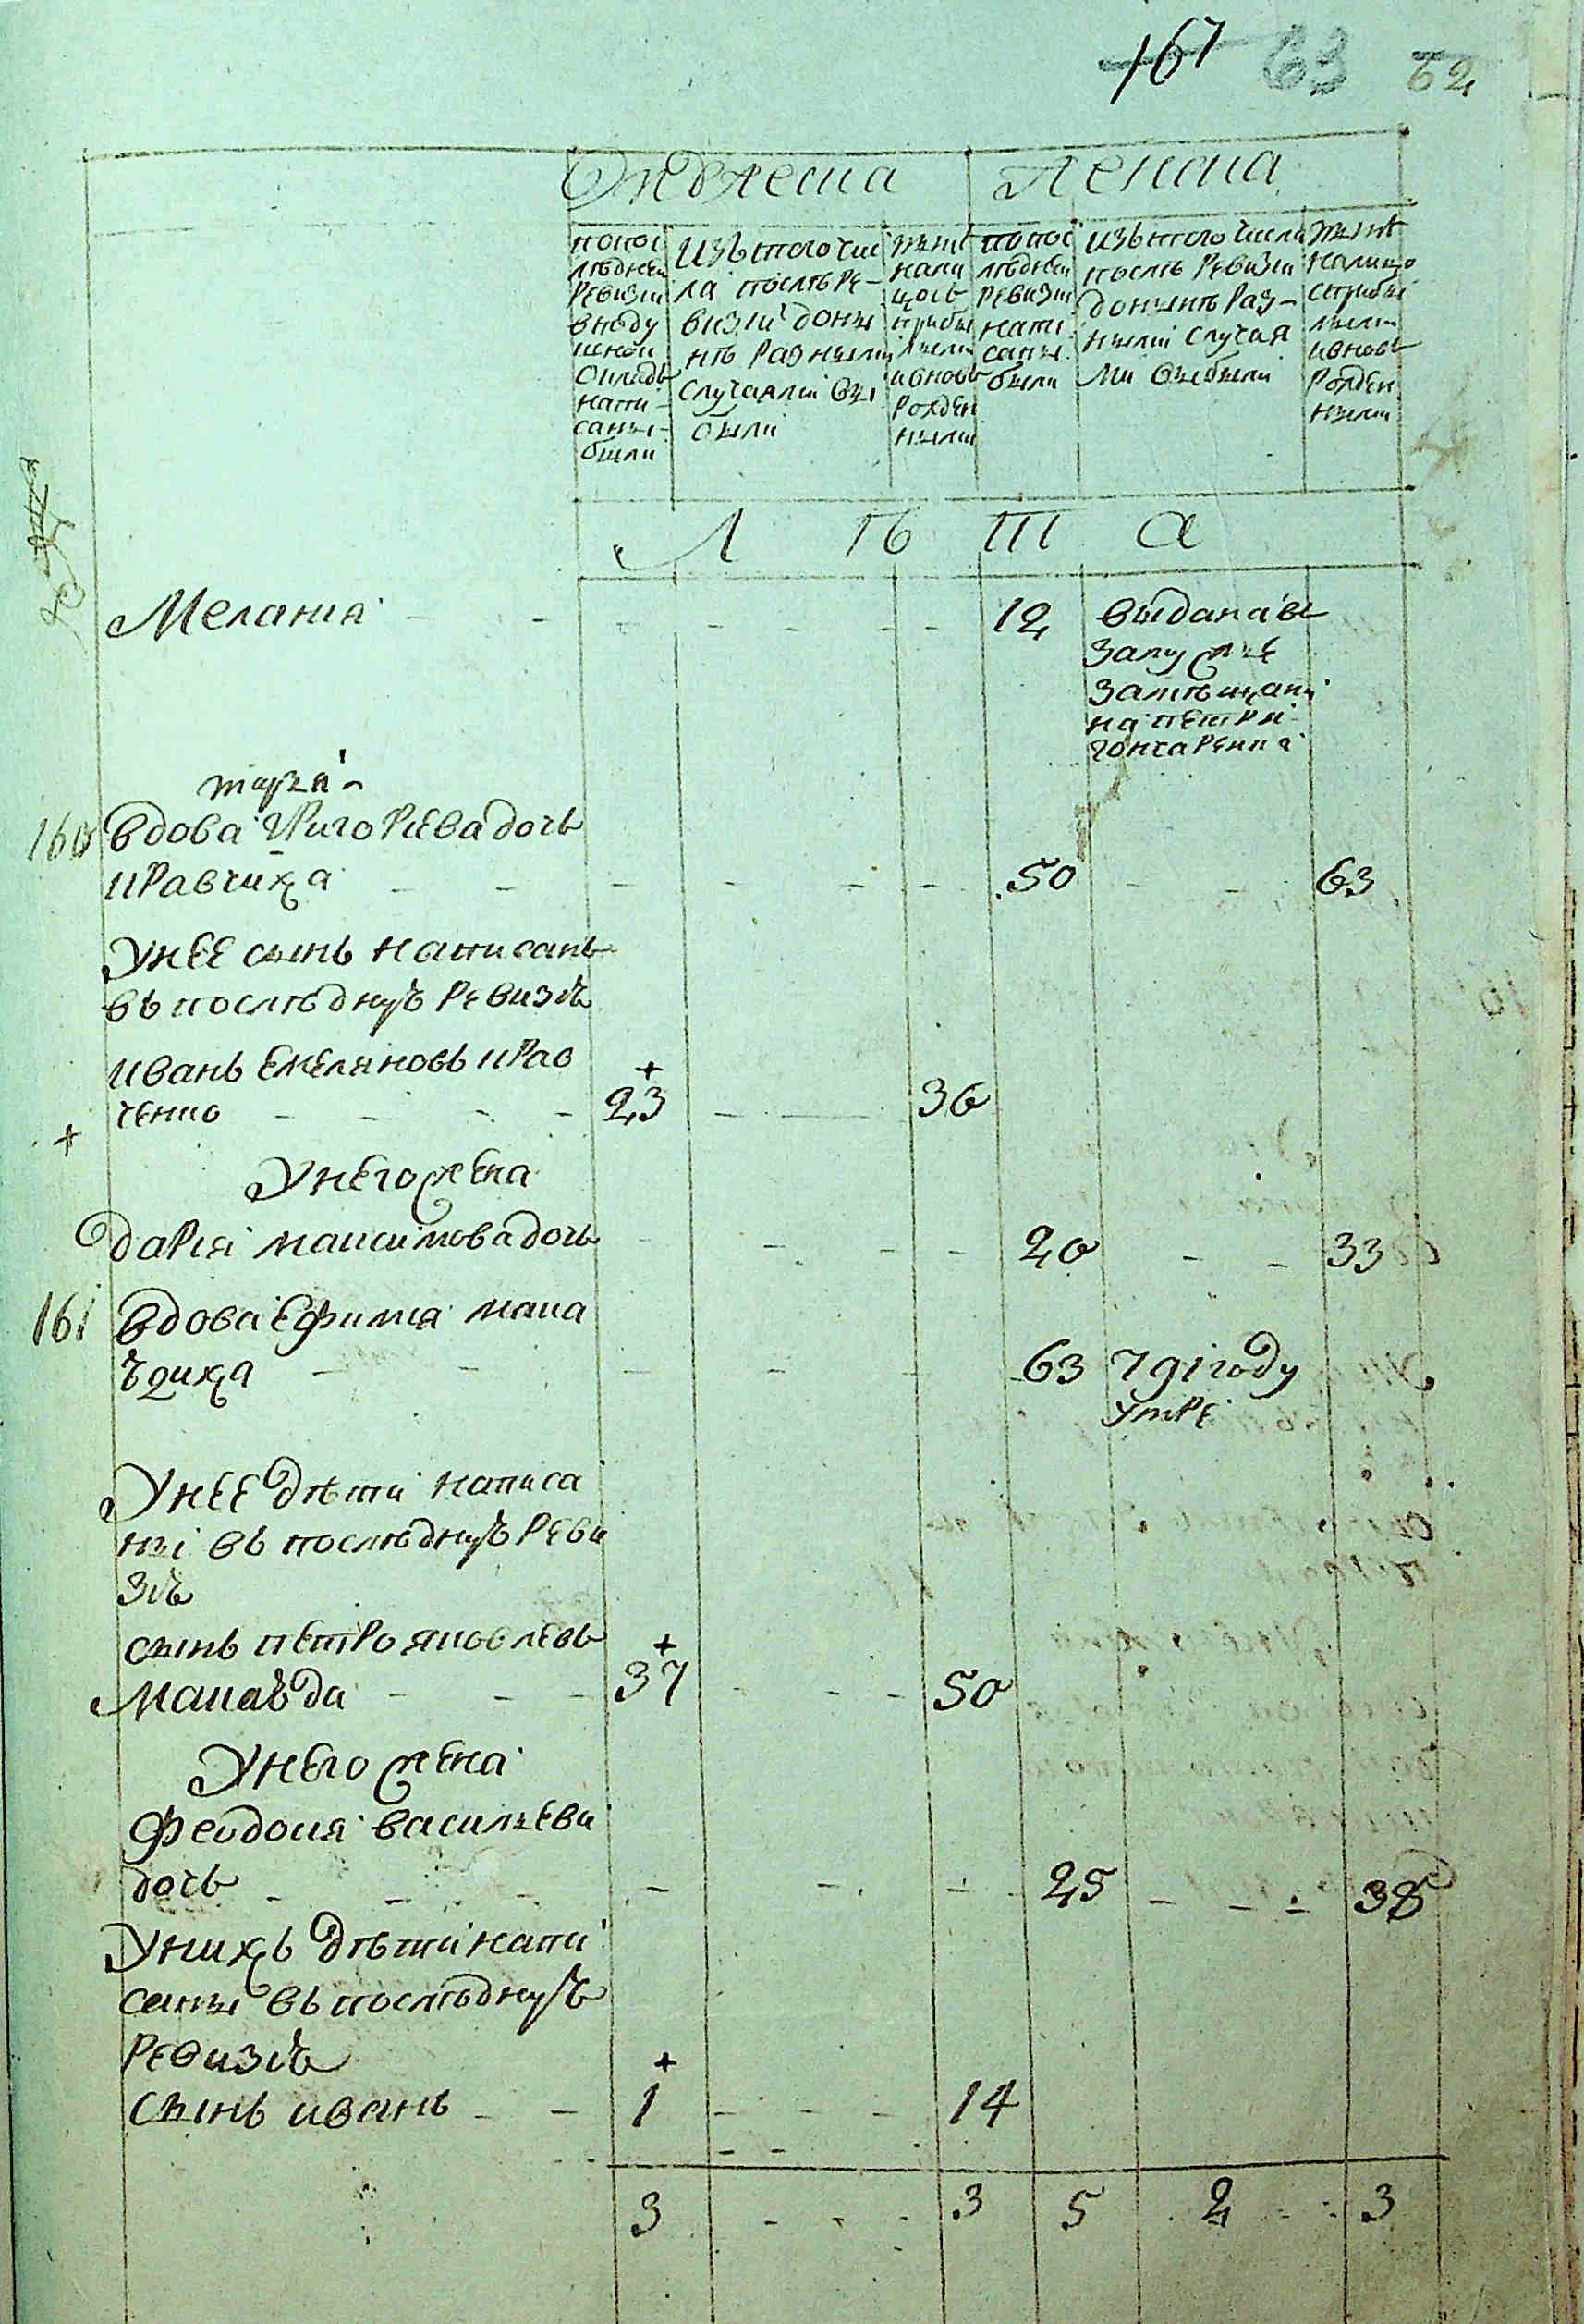 167 63 62
Мужеска Женска
по пос
лѣдней
ревизіи
в поду
шной
окладъ
напи-
саны-
были
изъ того чис
ла послѣ ре-
визіи до ны
нѣ разными
случаями вы
были
нынѣ
нали
цось
прибы
лыми
и вновь
рожден
ными
по пос
лѣдней
ревизіи
напи
саны
были
изъ того числа
послѣ ревизіи
до нынѣ раз-
ными случая
ми выбыли
нынѣ
налицо
с прибы
лыми
и вновь
рожден
ными
Л ѣ т а
Меланія 12 выдана въ
замужъе
за мѣщани
на петра
гончаренка
160 вдова григорiева дочь
кравчиха 50 63
У нее сынъ написанъ
въ последнуъ ревизiъ
иванъ емеляновъ крав
+
ченко 23 36
+
У него жена
дарiя максимова дочь 20 33
161 вдова ефимiя мака
ъдиха 63 791 году
умре
У нее дѣти написа
нi въ послѣднуъ реви
зiъ
сынъ петро яковлевъ +
макаъда 37 50
У него жена
феодосiя василъева
дочь 25 38
У нихъ дѣти напи
саны въ послѣднуъ
ревизiъ +
сынъ иванъ 1 14
3 3 5 2 3